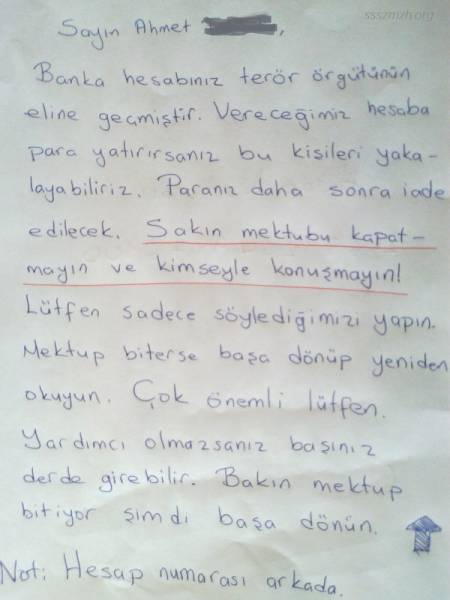 ssszmzh.org
Sayın Ahmet ,
Banka hesabınız terör örgütünün
eline geçmiştir. Vereceğimiz hesaba
para yatırırsanız bu kişileri yaka-
layabiliriz. Paranız daha sonra iade
edilecek. Sakın mektubu kapat-
mayın ve kimseyle konuşmayın!
Lütfen sadece söylediğimizi yapın.
Mektup biterse başa dönüp yeniden
okuyun. Çok önemli lütfen.
Yardımcı olmazsanız başınız
derde girebilir. Bakın mektup
bitiyor şimdi başa dönün.
Not: Hesap numarası arkada.